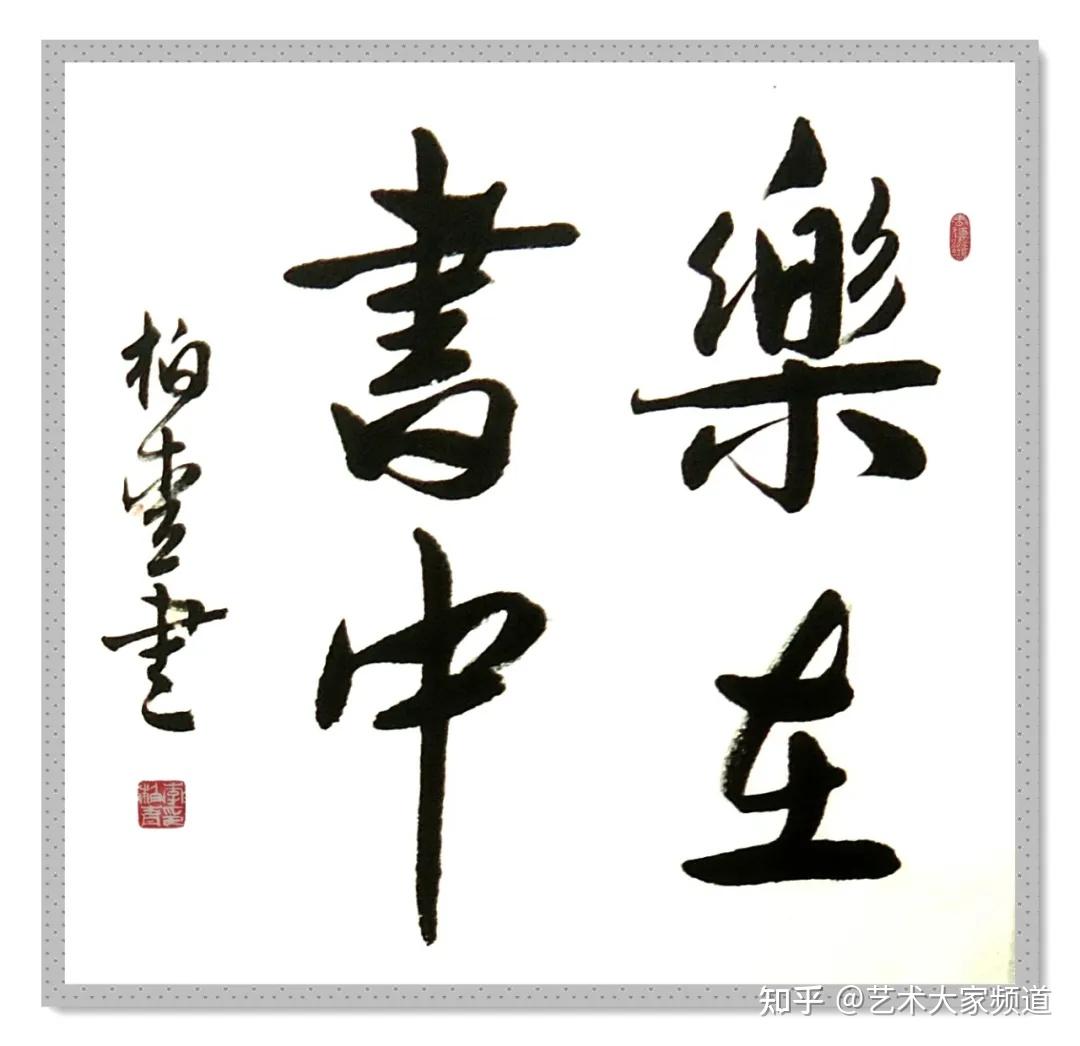 樂在
書中
柏壹書
知乎 @艺术大家频道